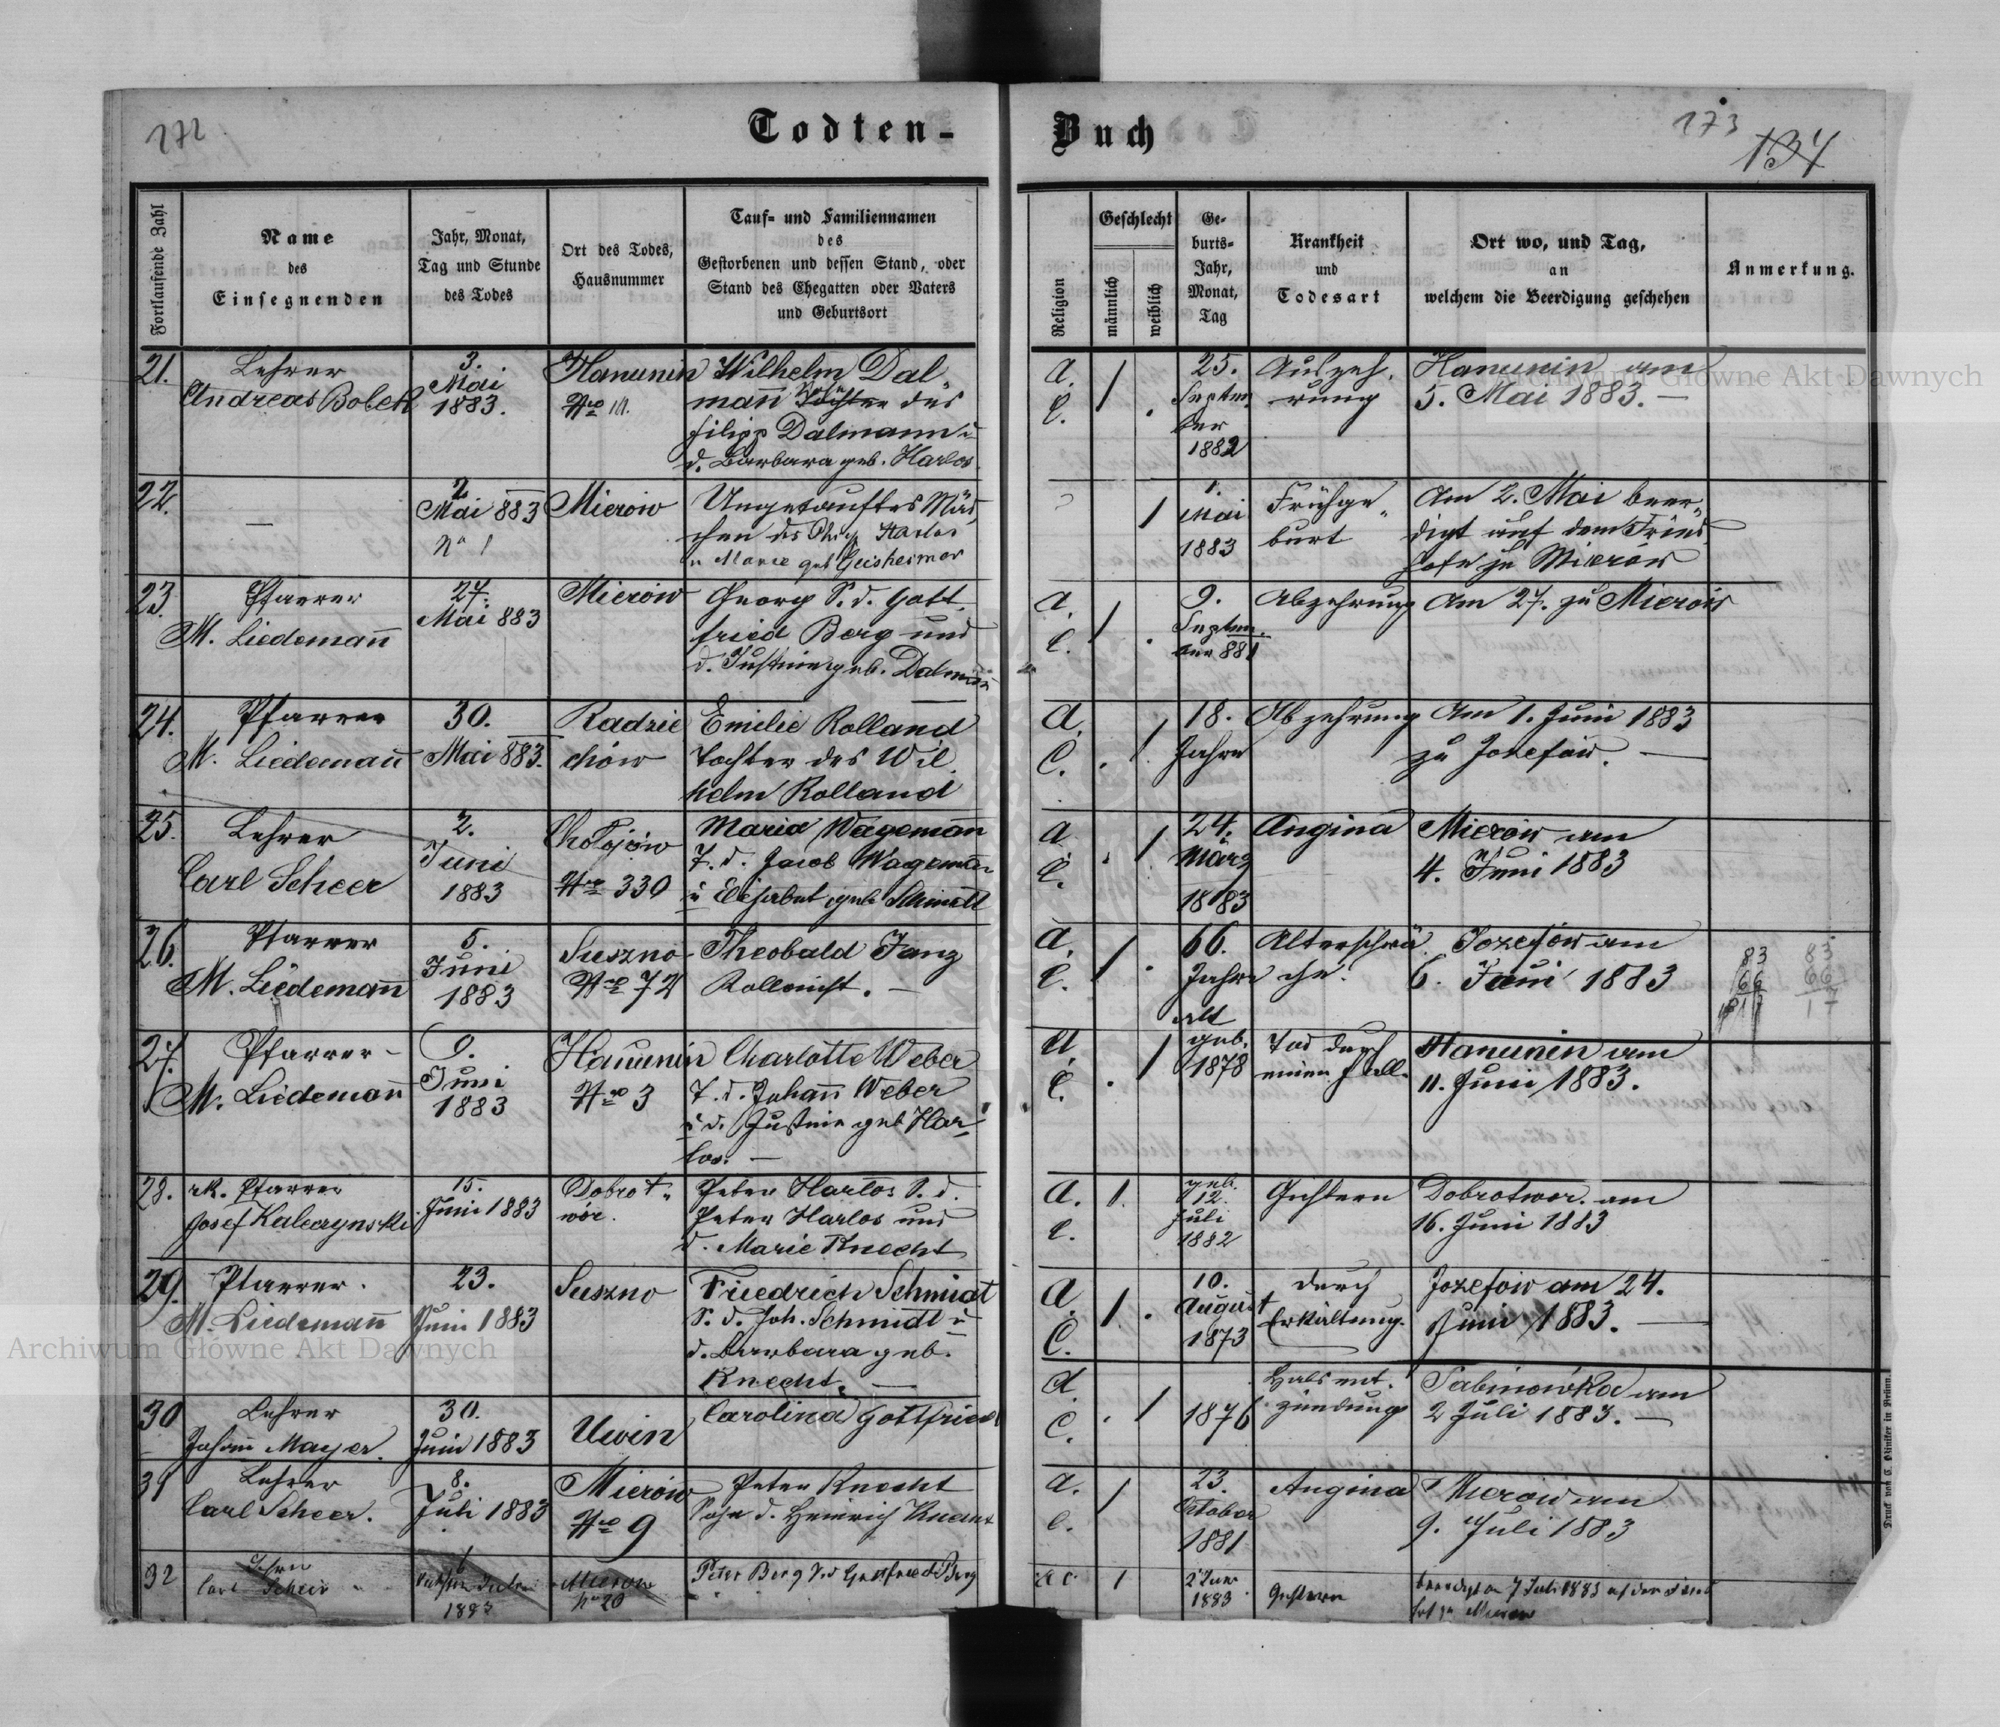 172
Todten-
Buch
173
134
Fortlaufende Zahl
Name
des
Einsegnenden
Jahr, Monat,
Tag und Stunde
des Todes
Ort des Todes,
Hausnummer
Tauf- und Familiennamen
des
Gestorbenen und dessen Stand, oder
Stand des Ehegatten oder Vaters
und Geburtsort
Religion
Geschlecht
männlich
weiblich
Ge-
burts-
Jahr,
Monat,
Tag
Krankheit
und
Todesart
Ort wo, und Tag,
an
welchem die Beerdigung geschehen
Anmerkung.
21.
Lehrer
Andreas Bolek
3.
Mai
1883.
Hanunin
Nro
Wilhelm Dal-
mañ Sohn des
Filipp Dalmann u
d. Barbara geb. Harlos
A.
C.
25.
Septem
ber
1882
Auszeh,
rung
Hanunin am
5. Mai 1883. —
22.
—
2
Mai 883
No 1
Mierow
Ungetauftes Mäd
chen des Phil. Harlos
u Marie geb Geisheimer
1.
Mai
1883
Frühge"
burt
Am 2. Mai beer"
digt auf dem Fried
hofe zu Mierów
23.
Pfarrer
M. Liedemañ
27.
Mai 883
Mierow
Georg S. d. Gott
fried Berg und
d. Justine geb. Dalmañ
A.
C.
9.
Septem
ber 881
Abzehrung
Am 27. zu Mierow
24.
Pfarrer
M. Liedemañ
30.
Mai 883.
Radzie
chów
Emilie Rolland
Tochter des Wil
helm Rolland
A.
C.
18.
Jahre
Abzehrung
Am 1. Juni 1883
zu Jozefów. —
25.
Lehrer
Carl Scheer
2.
Juni
1883
Chołojów
Nro 330
Maria Wagemañ
T. d. Jacob Wagemañ
u Elisabet geb Schmidt
A.
C.
24.
März
1883
Angina
Mierów am
4. Juni 1883
26.
Pfarrer
M. Liedemañ
5.
Juni
1883
Suszno
Nro 72
Theobald Janz
Kollonist. —
A.
C.
66.
Jahre
alt
Alterschwä
che.
Jozefów am
6. Juni 1883
83
66
17
83
66
17
27.
Pfarrer
M. Liedemañ
9.
Juni
1883
Hanunin
Nro 3
Charlotte Weber
T. d. Johañ Weber
u d. Justine geb Har
los. —
A.
C.
geb.
1878
Tod durch
einen Fall.
Hanunin am
11. Juni 1883.
28.
rk. Pfarrer
Josef Kalczynski
15.
Juni 1883
Dobrot"
wór.
Peter Harlos S. d.
Peter Harlos und
d. Marie Knecht
A.
C.
geb.
12.
Juli
1882
Gichtern
Dobrotwor. am
16. Juni 1883
29.
Pfarrer.
M. Liedemañ
23.
Juni 1883
Suszno
Friedrich Schmidt
S. d. Joh. Schmidt u
d. Barbara geb.
Knecht. —
A.
C.
10.
August
1873
durch
Erkältung.
Jozefow am 24.
Juni 1883. —
30
Lehrer
Johañ Mayer.
30.
Juni 1883
Uwin
Carolina Gottfried
A.
C.
1876
Halsent.
zündung
Sabinówka am
2 Juli 1883. —
31
Lehrer
Carl Scheer.
8.
Juli 1883
Mierów
Nro 9
Peter Knecht
Sohn d. Heinrich Knecht
A.
C.
23.
Oktober
1881
Angina
Mierow am
9. Juli 1883
32
Lehrer
Carl Scheer
6
1883
Mierow
No 20
Peter Berg S.d Gottfried Berg
1883
Gichtern
beerdigt am 7 Juli 1883 auf dem Fried
hof zu Mierow
Druck von C. Winiker in Brünn.
Archiwum Główne Akt Dawnych
Archiwum Główne Akt Dawnych